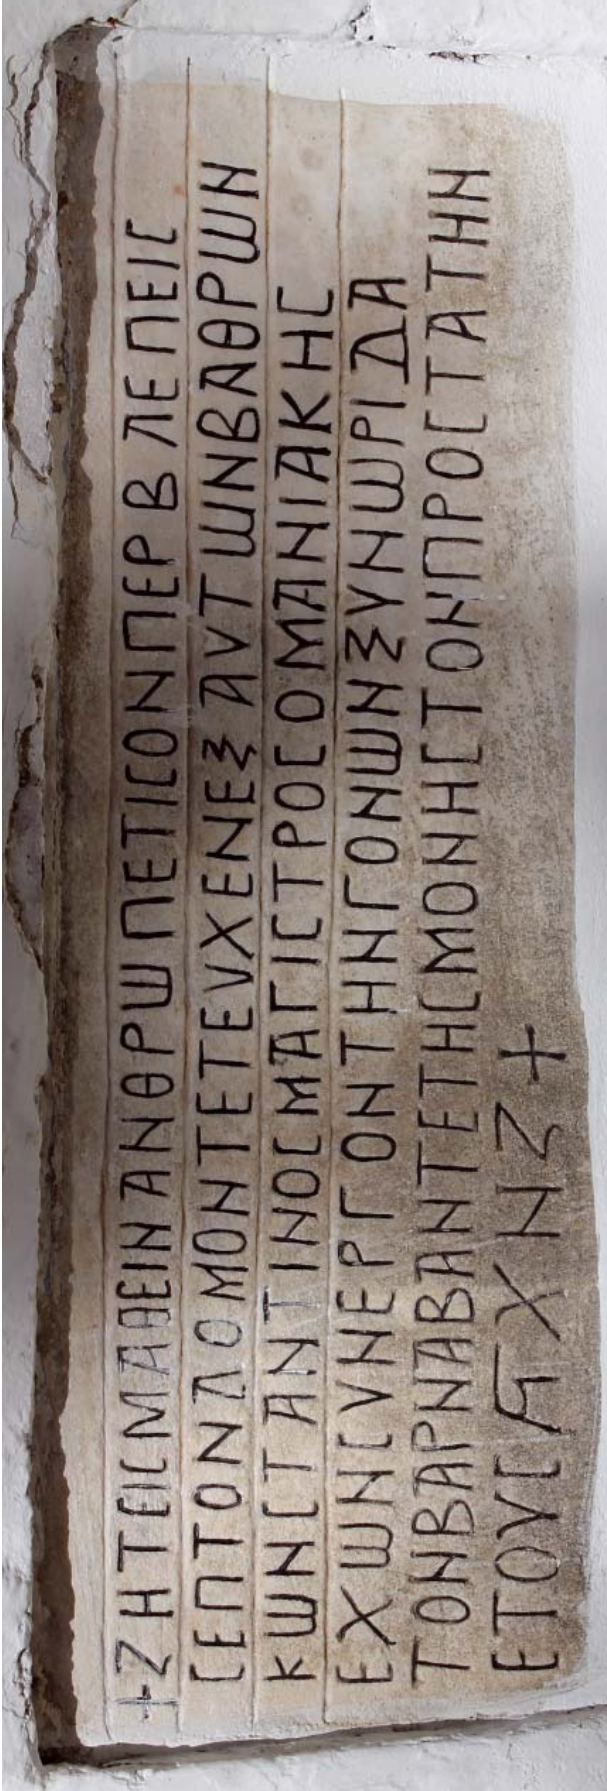 +ΖΗΤΕΙCΜΑΘΕΙΝΑΝΘΡΩΠΕΤΙCΟΝΠΕΡΒΛΕΠΕΙC
CΕΠΤΟΝΔΟΜΟΝΤΕΤΕΥΧΕΝΕΞΑΥΤΩΝΒΑΘΡΩΝ
ΚΩΝCΤΑΝΤΙΝΟCΜΑΓΙCΤΡΟCΟΜΑΝΙΑΚΗC
ΕΧΩΝCΥΝΕΡΓΟΝΤΗΝΓΟΝΩΝΞΥΝΩΡΙΔΑ
ΤΟΝΒΑΡΝΑΒΑΝΤΕΤΗCΜΟΝΗCΤΟΝΠΡΟCΤΑΤΗΝ
ΕΤΟΥCϠΧΝΖ+